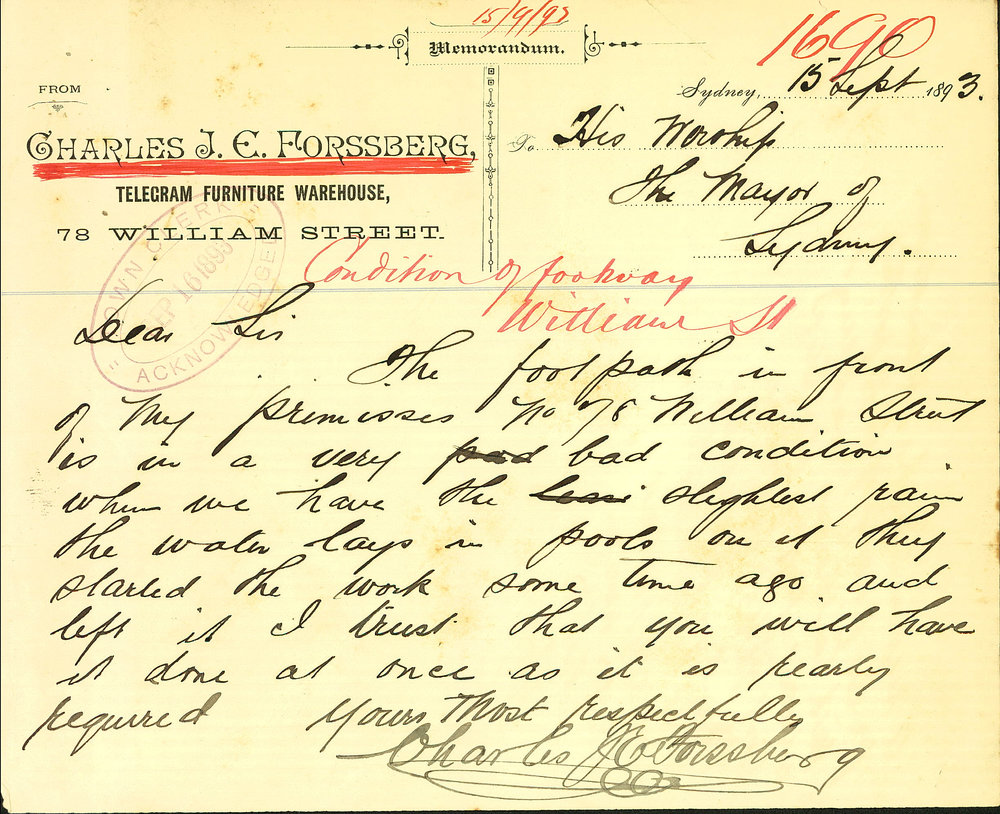 15/9/93
Memorandum.
1690
FROM
Sydney, 15 Sept 1893.
CHARLES J. E. FORSSBERG,
To His Worship
TELEGRAM FURNITURE WAREHOUSE,
The Mayor of
78 WILLIAM STREET.
Sydney.
"TOWN CLERK"
SEP 16 1893
ACKNOWLEDGED
Condition of footway
William St
Dear Sir
The foot path in front
of My premisses No 78 William Street
is in a very pad bad condition
when we have the slightest rain
the water lays in pools on it they
started the work some time ago and
left it I trust that you will have
it done at once as it is rearly
required yours Most respectfully
Charles J E Forssberg